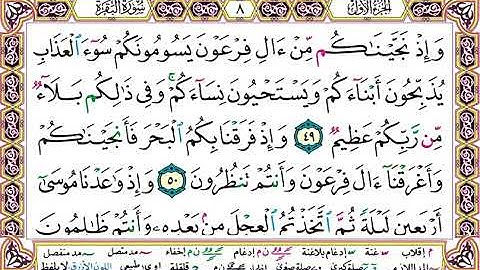 الجزء الأول ٨ سورة البقرة
وَإِذْ نَجَّيْنَاكُم مِّنْ ءَالِ فِرْعَوْنَ يَسُومُونَكُمْ سُوٓءَ ٱلْعَذَابِ
يُذَبِّحُونَ أَبْنَآءَكُمْ وَيَسْتَحْيُونَ نِسَآءَكُمْ ۚ وَفِى ذَٰلِكُم بَلَآءٌ
مِّن رَّبِّكُمْ عَظِيمٌ ٤٩ وَإِذْ فَرَقْنَا بِكُمُ ٱلْبَحْرَ فَأَنجَيْنَاكُمْ
وَأَغْرَقْنَآ ءَالَ فِرْعَوْنَ وَأَنتُمْ تَنظُرُونَ ٥٠ وَإِذْ وَاعَدْنَا مُوسَىٰٓ
أَرْبَعِينَ لَيْلَةً ثُمَّ ٱتَّخَذْتُمُ ٱلْعِجْلَ مِنۢ بَعْدِهِۦ وَأَنتُمْ ظَالِمُونَ
م إقلاب غنة إدغام بلاغنة إدغام إخفاء مد متصل مد منفصل
قلقلة طبيعي اللون الأزرق لا يلفظ